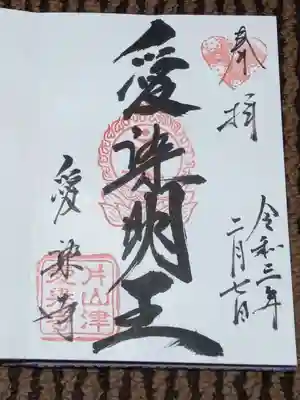 奉拝
令和三年
二月七日
愛染明王
愛染寺
片山津
愛染寺